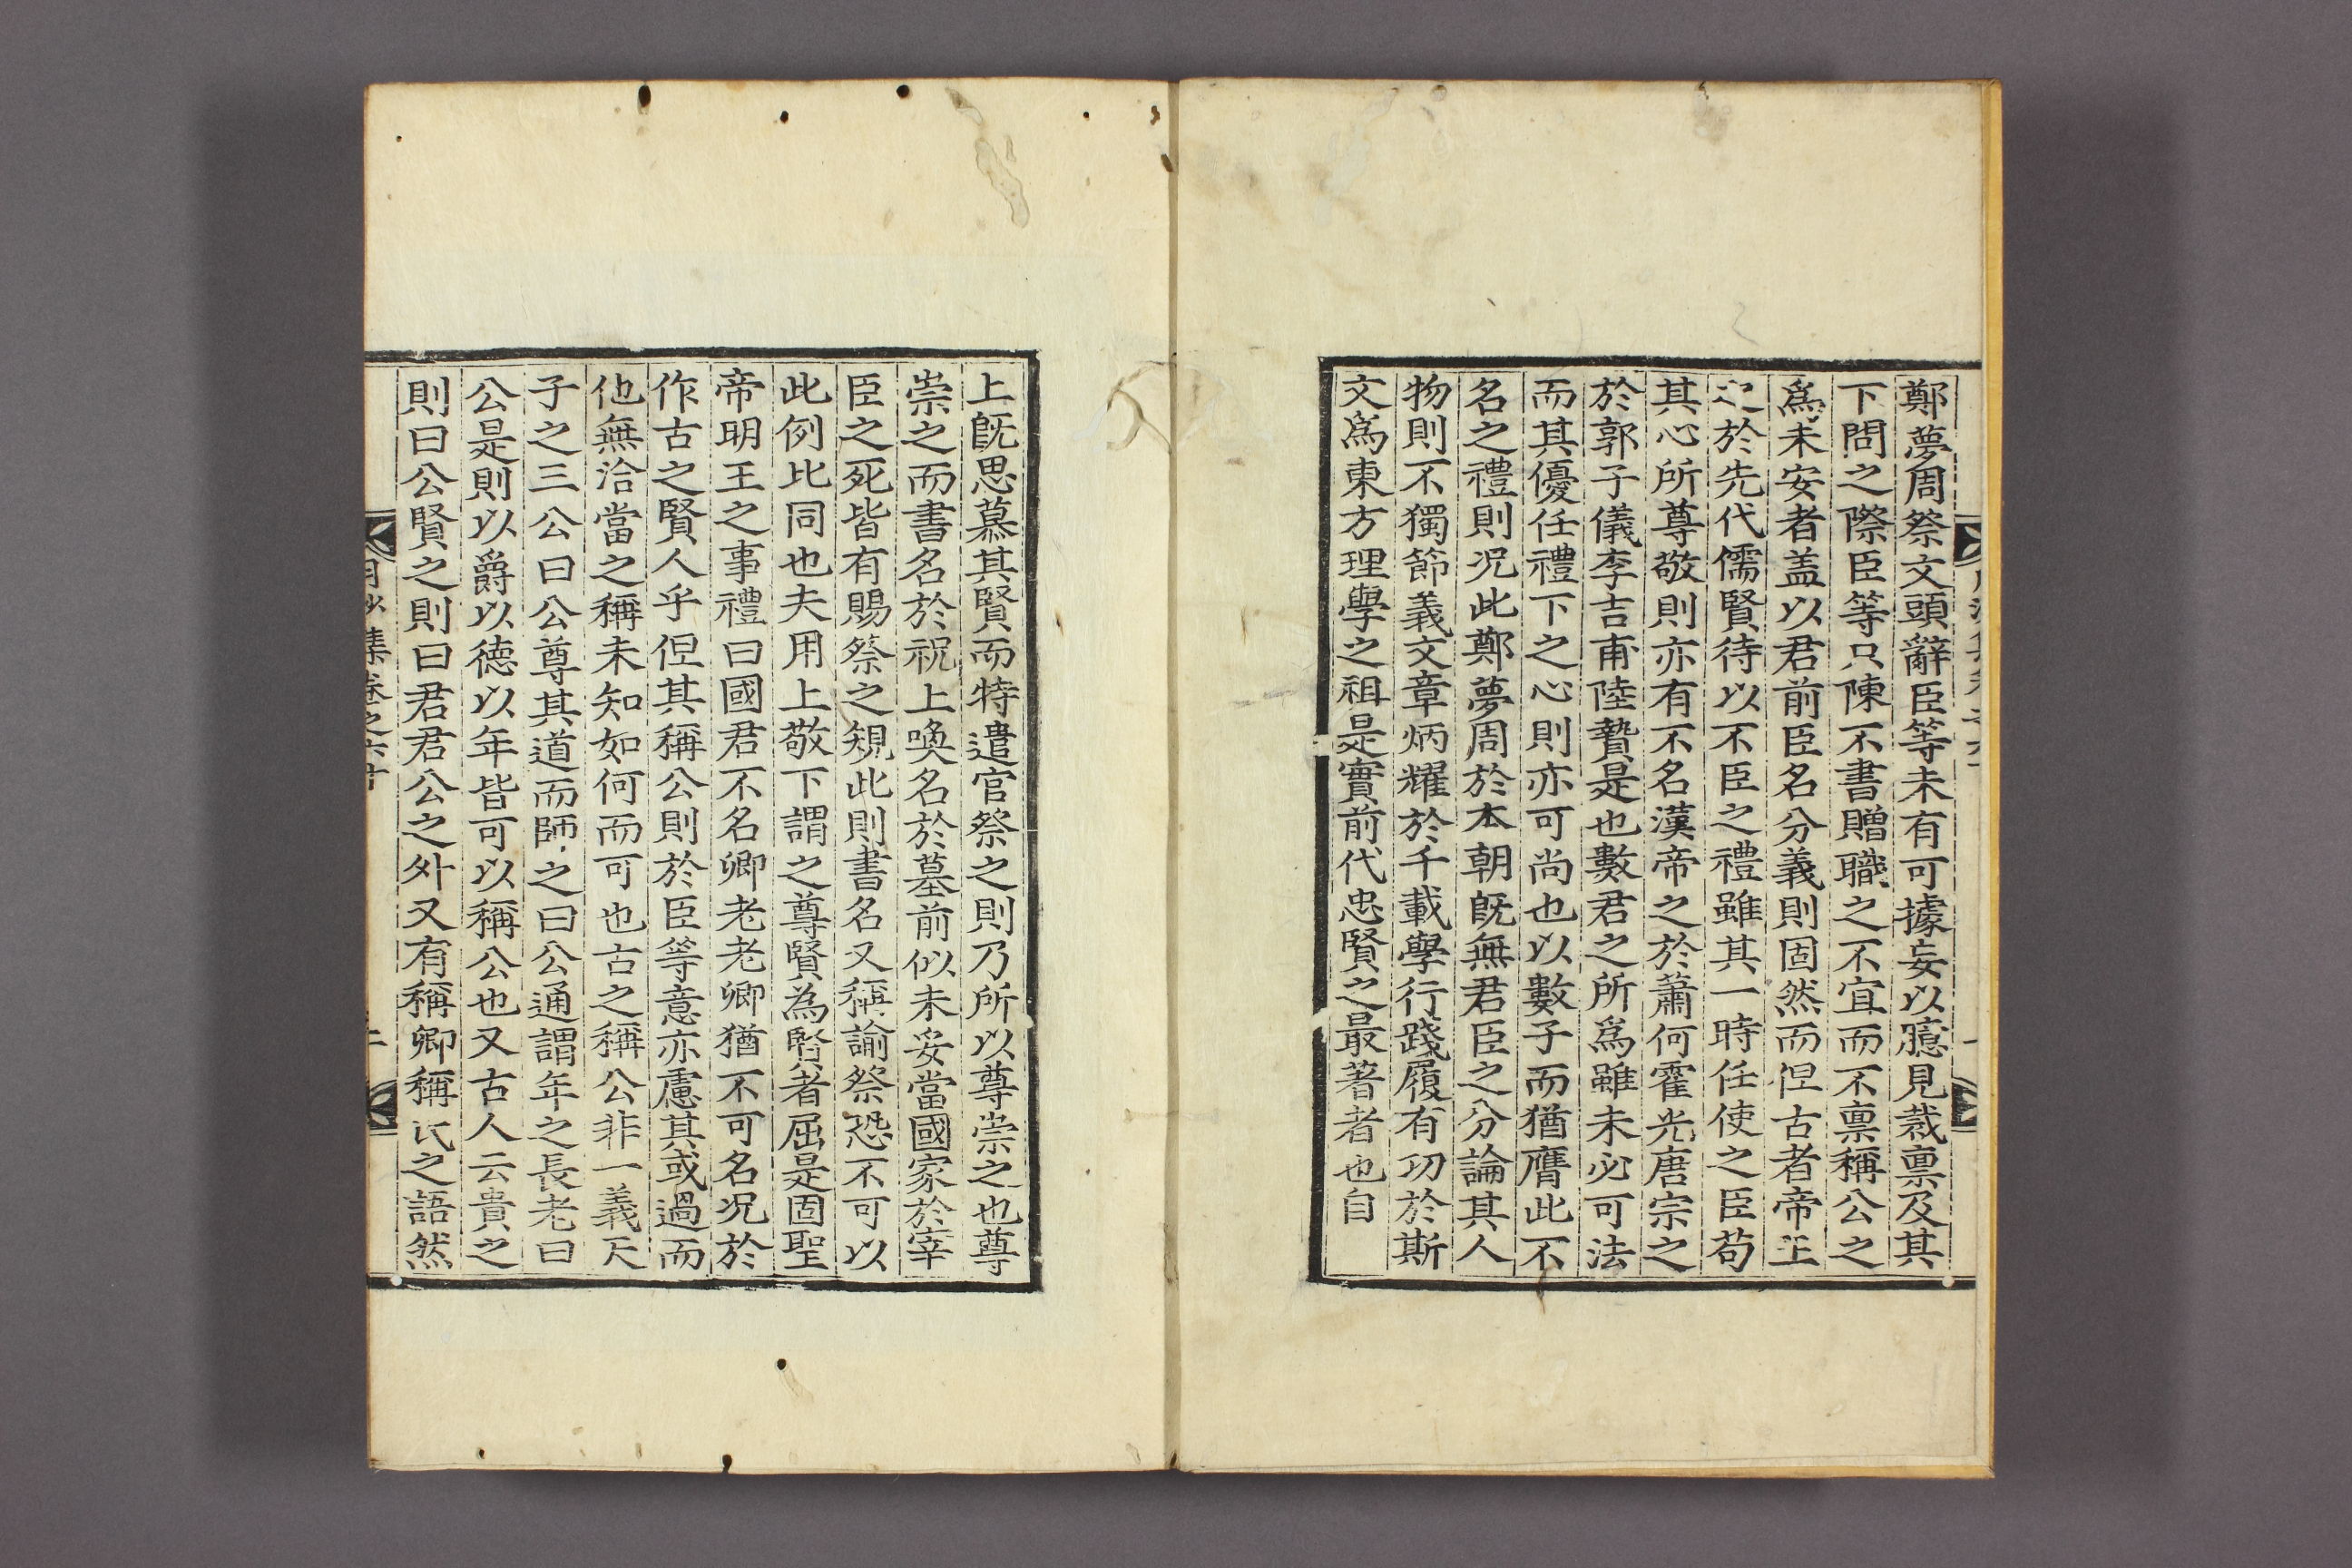 鄭夢周祭文頭辭臣等未有可據妄以臆見裁禀及其
下問之際臣等只陳不書贈職之不宜而不禀稱公之
爲未安者盖以君前臣名分義則固然而但古者帝王
之於先代儒賢待以不臣之禮雖其一時任使之臣苟
其心所尊敬則亦有不名漢帝之於蕭何霍光唐宗之
於郭子儀李吉甫陸贄是也數君之所爲雖未必可法
而其優任禮下之心則亦可尚也以數子而猶膺此不
名之禮則况此鄭夢周於本朝旣無君臣之分論其人
物則不獨節義文章炳耀於千載學行踐履有功於斯
文爲東方理學之祖是實前代忠賢之最著者也自
上旣思慕其賢而特遣官祭之則乃所以尊崇之也尊
崇之而書名於祝上喚名於墓前似未妥當國家於宰
臣之死皆有賜祭之規此則書名又稱諭祭恐不可以
此例比同也夫用上敬下謂之尊賢為賢者屈是固聖
帝明王之事禮曰國君不名卿老老卿猶不可名况於
作古之賢人乎但其稱公則於臣等意亦慮其或過而
他無洽當之稱未知如何而可也古之稱公非一義天
子之三公曰公尊其道而師之曰公通謂年之長老曰
公是則以爵以德以年皆可以稱公也又古人云貴之
則曰公賢之則曰君君公之外又有稱卿稱氏之語然
集卷之六